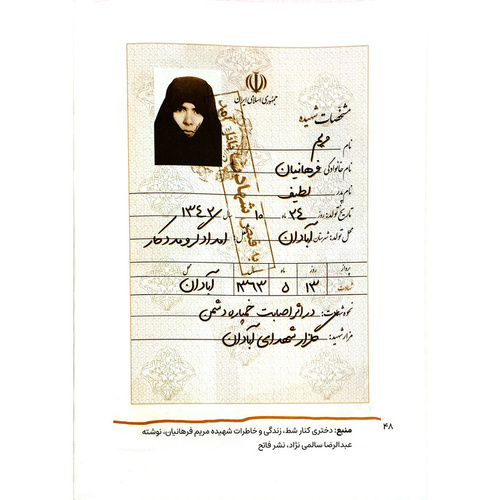 جمهوری اسلامی ایران
مشخصات شهیده
نام مریم
نام خانوادگی فرهانیان
نام پدر لطیف
تاریخ تولد: روز ۲۴ ماه ۱۰ سال ۱۳۴۲
محل تولد: شهرستان آبادان شغل: امدادگر و مددکار
پرواز روز ماه سال محل
شهادت ۱۳ ۵ ۱۳۶۳ آبادان
نحوه شهادت: در اثر اصابت خمپاره دشمن
مزار شهید: گلزار شهدای آبادان
۴۸
منبع: دختری کنار شط، زندگی و خاطرات شهیده مریم فرهانیان، نوشته
عبدالرضا سالمی نژاد، نشر فاتح